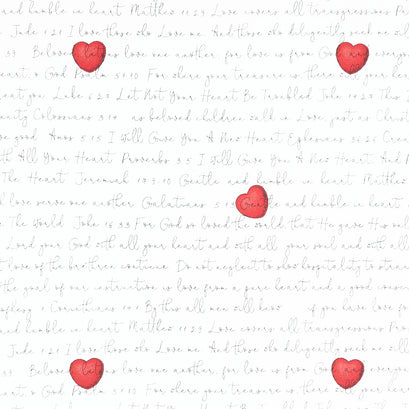 and humble in heart Matthew 11 29 Love covers all transgressions Pro
Jude 1 21 I love those who Love me And those who diligently seek me
Beloved let us love one another for love is from God and everyone
heart, O God Psalm 51 10 For where your treasure is, there will your heart
Luke 6 20 Let Not Your Heart Be Troubled John 14 27 This I
unity Colossians 3 14 as beloved children walk in Love just as Christ
good Amos 5 15 I Will Give You A New Heart Ephesians 36 26 Create
with All Your Heart Proverbs 3 5 I Will Give You A New Heart And
The Heart Jeremiah 17 9 10 Gentle and humble in heart Matthew
love serve one another Galatians 5 Gentle and humble in heart
The World John 16 33 For God so loved the world that He gave His only
Lord your God with all your heart and with all your soul and with all your
love of the brethren continue Do not neglect to show hospitality to
the goal of our instruction is love from a pure heart and a good
1 Corinthians By this all men will know if you have love for
and humble in heart Matthew 11 29 Love covers all transgressions Pro
Jude 1 21 I love those who Love me And those who diligently seek me
Beloved let us love one another, for love is from God and everyone
heart, O God Psalm 51 10 For where your treasure is, there will your heart